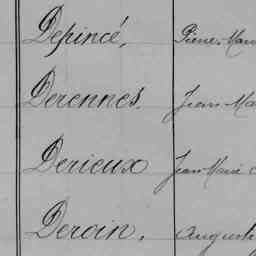 Depincé, Pierre
Derennes. Jean
Derieux Jean Marie
Deroin,